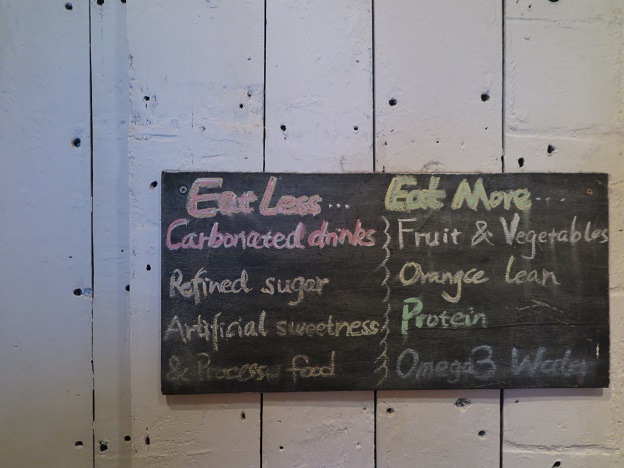 Eat Less...
Carbonated drinks
Refined sugar
Artificial sweetness
& Process food
Eat More...
Fruit & Vegetables
Orangce lean
Protein
Omega3 Water